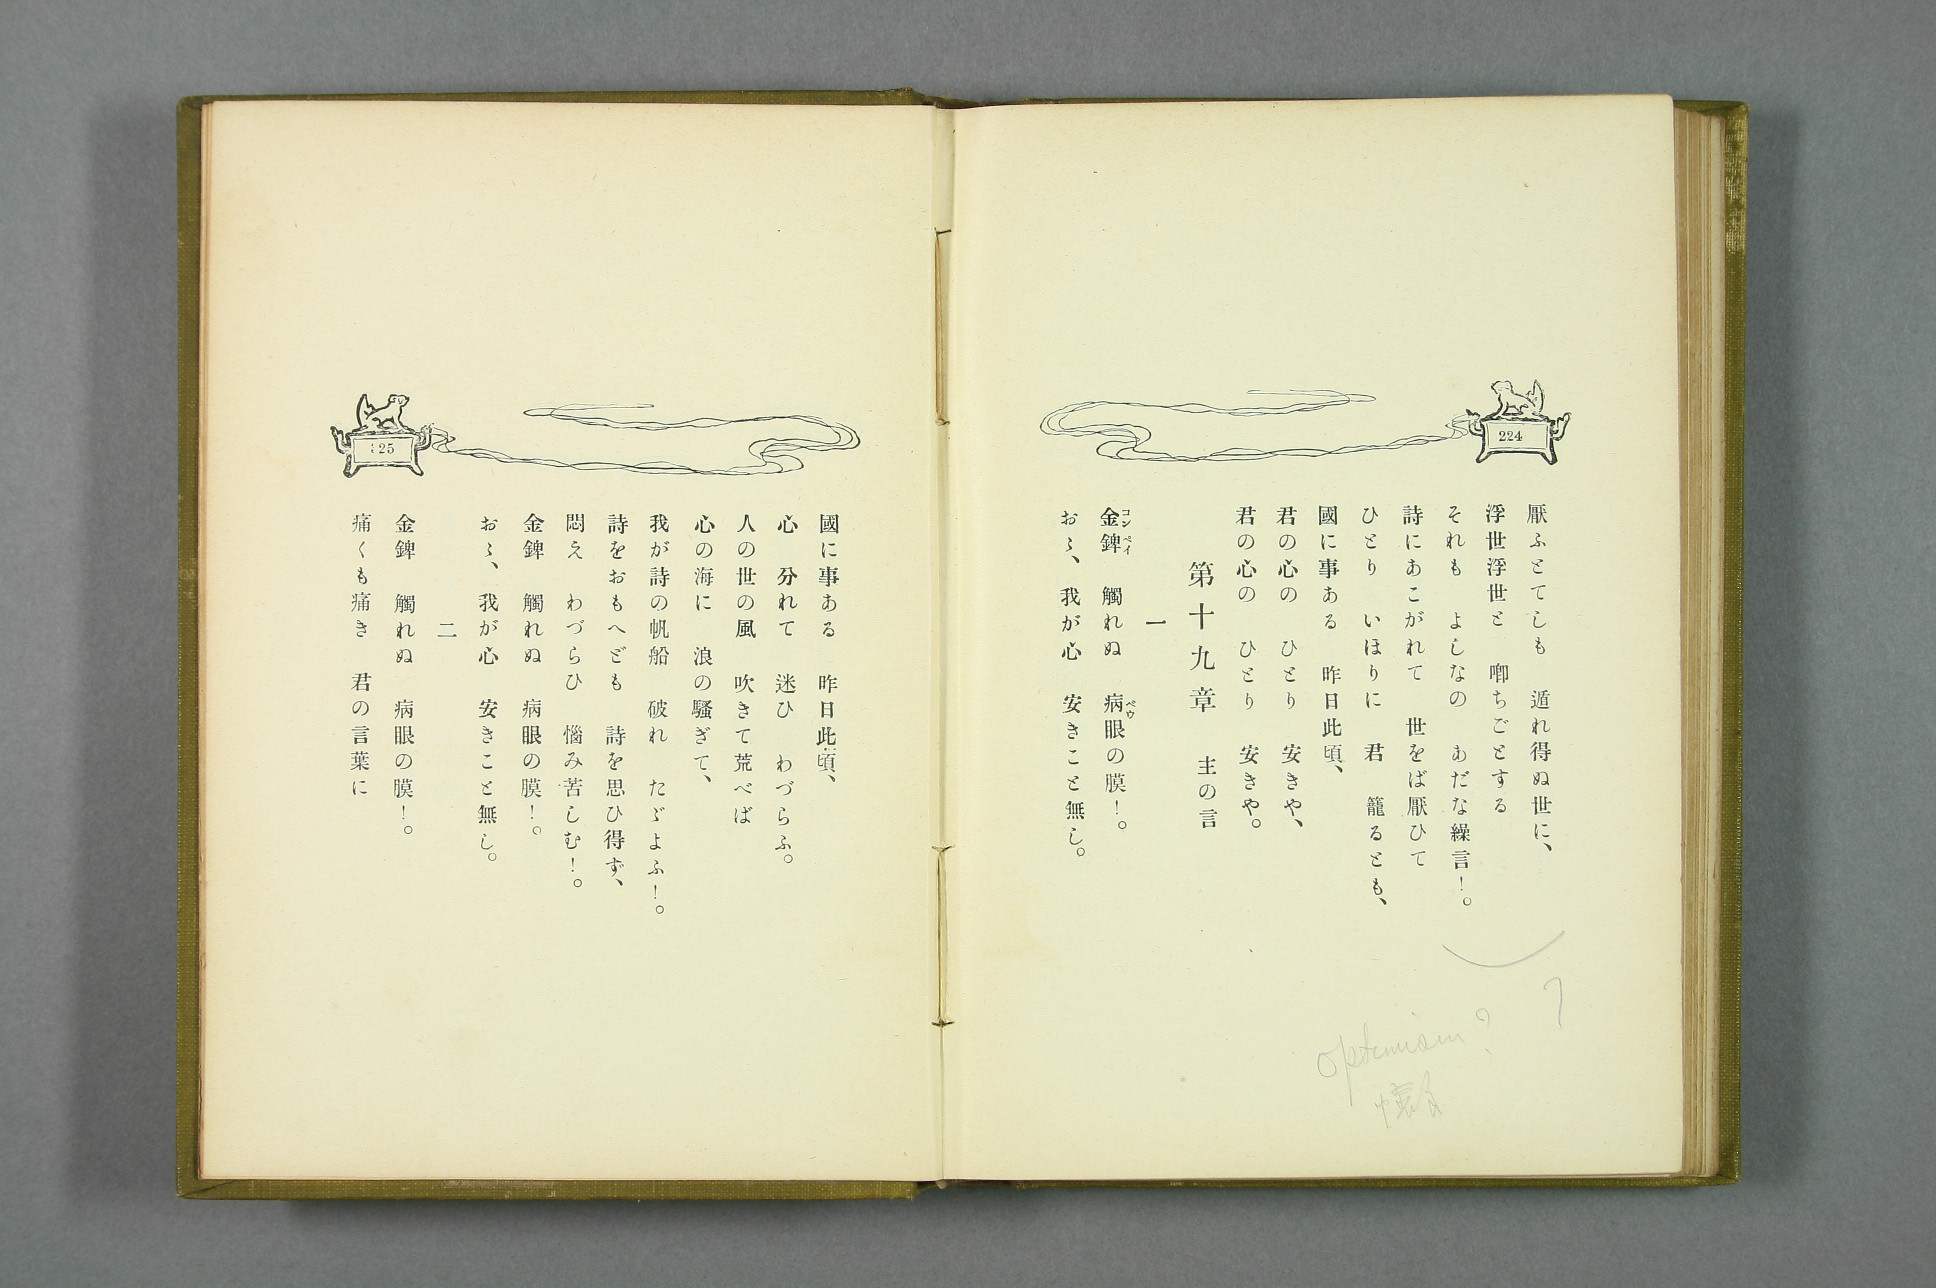 224
厭ふとてしも　遁れ得ぬ世に、
浮世浮世と　啣ちごとする
それも　よしなの　あだな繰言！。
詩にあこがれて　世をば厭ひて
ひとり　いほりに　君　籠るとも、
國に事ある　昨日此頃、
君の心の　ひとり　安きや、
君の心の　ひとり　安きや。
第十九章　主の言
一
金錍　觸れぬ　病眼の膜！。
コンペイ
ベウ
おゝ、我が心　安きこと無し。
optimism?
25
國に事ある　昨日此頃、
心　分れて　迷ひ　わづらふ。
人の世の風　吹きて荒べば
心の海に　浪の騷ぎて、
我が詩の帆船　破れ　たゞよふ！。
詩をおもへども　詩を思ひ得ず、
悶え　わづらひ　惱み苦しむ！。
金錍　觸れぬ　病眼の膜！。
おゝ、我が心　安きこと無し。
二
金錍　觸れぬ　病眼の膜！。
痛くも痛き　君の言葉に